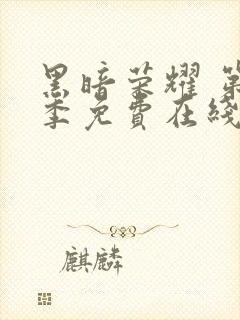 黑暗荣耀 第
季免費在綫
麒麟